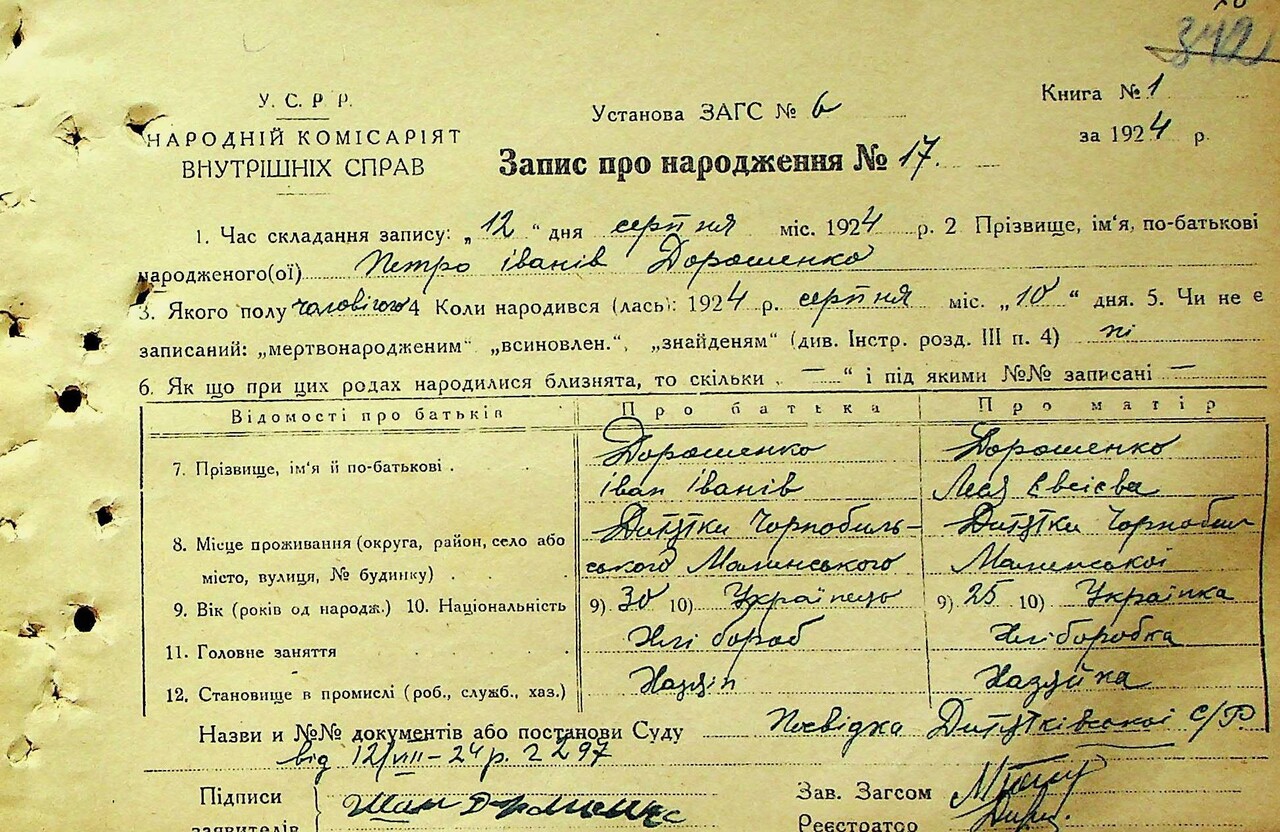 342
У. С. Р Р.
НАРОДНІЙ КОМІСАРІЯТ
ВНУТРІШНІХ СПРАВ
Установа ЗАГС № 6
Книга № 1
за 1924 р
Запис про народження № 17.
1. Час складання запису: „ 12 “ дня серпня міс. 1924 р. 2 Прізвище, ім'я, по-батькові
народженого(ої) Петро іванів Дорошенко
3. Якого полу чоловічого 4 Коли народився (лась): 1924 р. серпня міс. „ 10 “ дня. 5. Чи не є
записаний: „мертвонародженим“ „всиновлен.“, „знайденям“ (див. Інстр. розд. III п. 4) ні
6. Як що при цих родах народилися близнята, то скільки „ — “ і під якими №№ записані —
Відомості про батьків Про батька Про матір
7. Прізвище, ім'я й по-батькові . Дорошенко Дорошенко
іван іванів Євсієва
8. Місце проживання (округа, район, село або Дитятки Чорнобиль- Дитятки Чорнобил
місто, вулиця, № будинку) . . ського Малинського Малинської
9. Вік (років од народж.) 10. Національність 9) 30 10) Українець 9) 25 10) Українка
11. Головне заняття . . . Хлібороб Хліборобка
12. Становище в промислі (роб., служб., хаз.) Хазяїн Хазяйка
Назви и №№ документів або постанови Суду Посвідка Дитятківської С/Р
від 12/VIII-24 р. 297
Підписи
заявителів
Зав. Загсом
Реєстратор